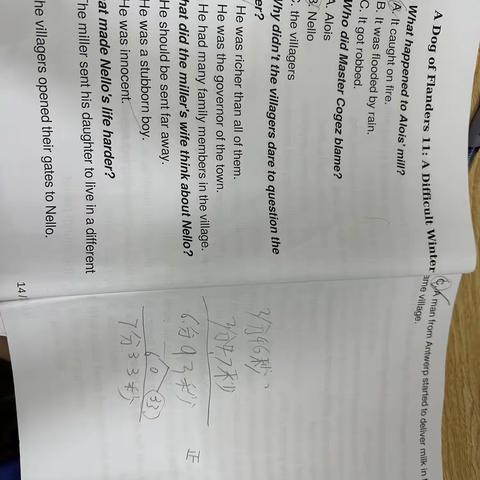 C. A man from Antwerp started to deliver milk in t
ame village.
A Dog of Flanders 11: A Difficult Winter
What happened to Alois' mill?
A. It caught on fire.
B. It was flooded by rain.
C. It got robbed.
Who did Master Cogez blame?
A. Alois
B. Nello
C. the villagers
Why didn't the villagers dare to question the
er?
He was richer than all of them.
He was the governor of the town.
He had many family members in the village.
hat did the miller's wife think about Nello?
He should be sent far away.
He was a stubborn boy.
He was innocent.
at made Nello's life harder?
he miller sent his daughter to live in a different
he villagers opened their gates to Nello.
14/
3分46秒
3分47秒
6分93秒
60 33
7分33秒
正